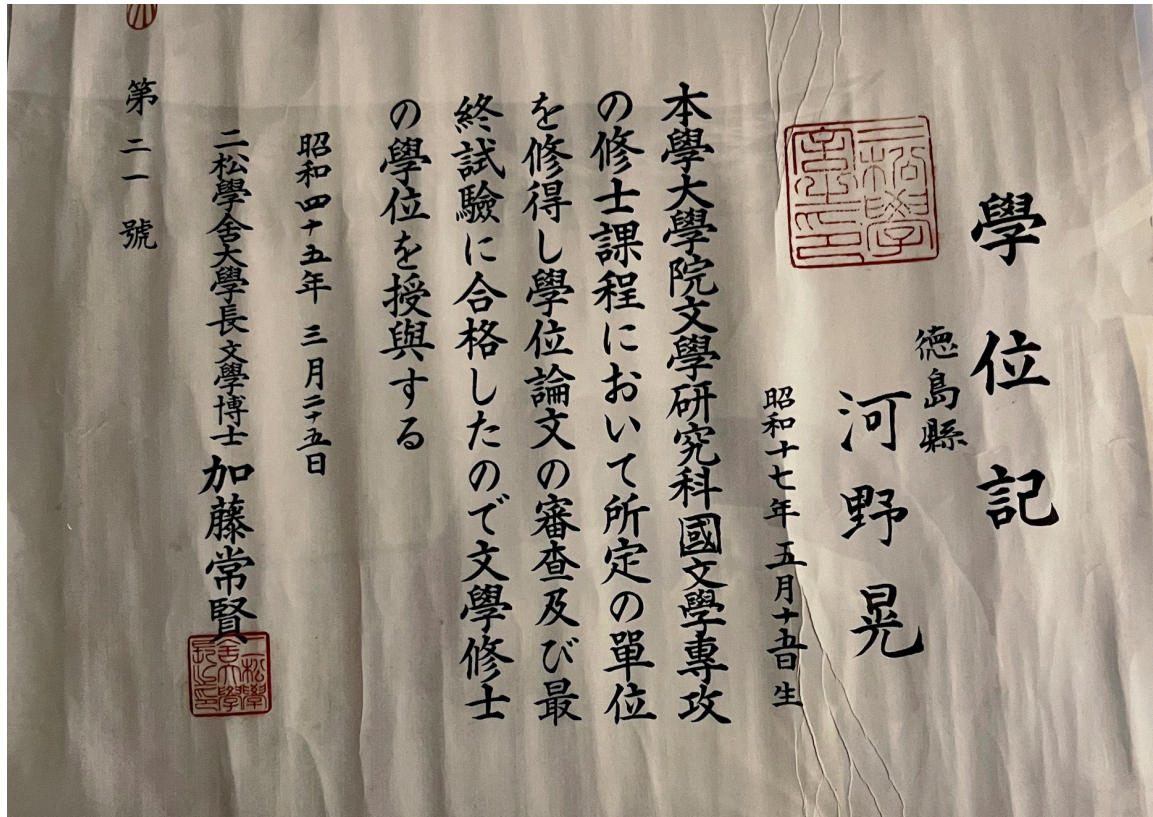 學位記
徳島縣
河野晃
昭和十七年五月十五日生
本學大學院文學研究科國文學專攻
の修士課程において所定の單位
を修得し學位論文の審査及び最
終試驗に合格したので文學修士
の學位を授與する
昭和四十五年三月二十五日
二松學舍大學長文學博士加藤常賢
第二一號